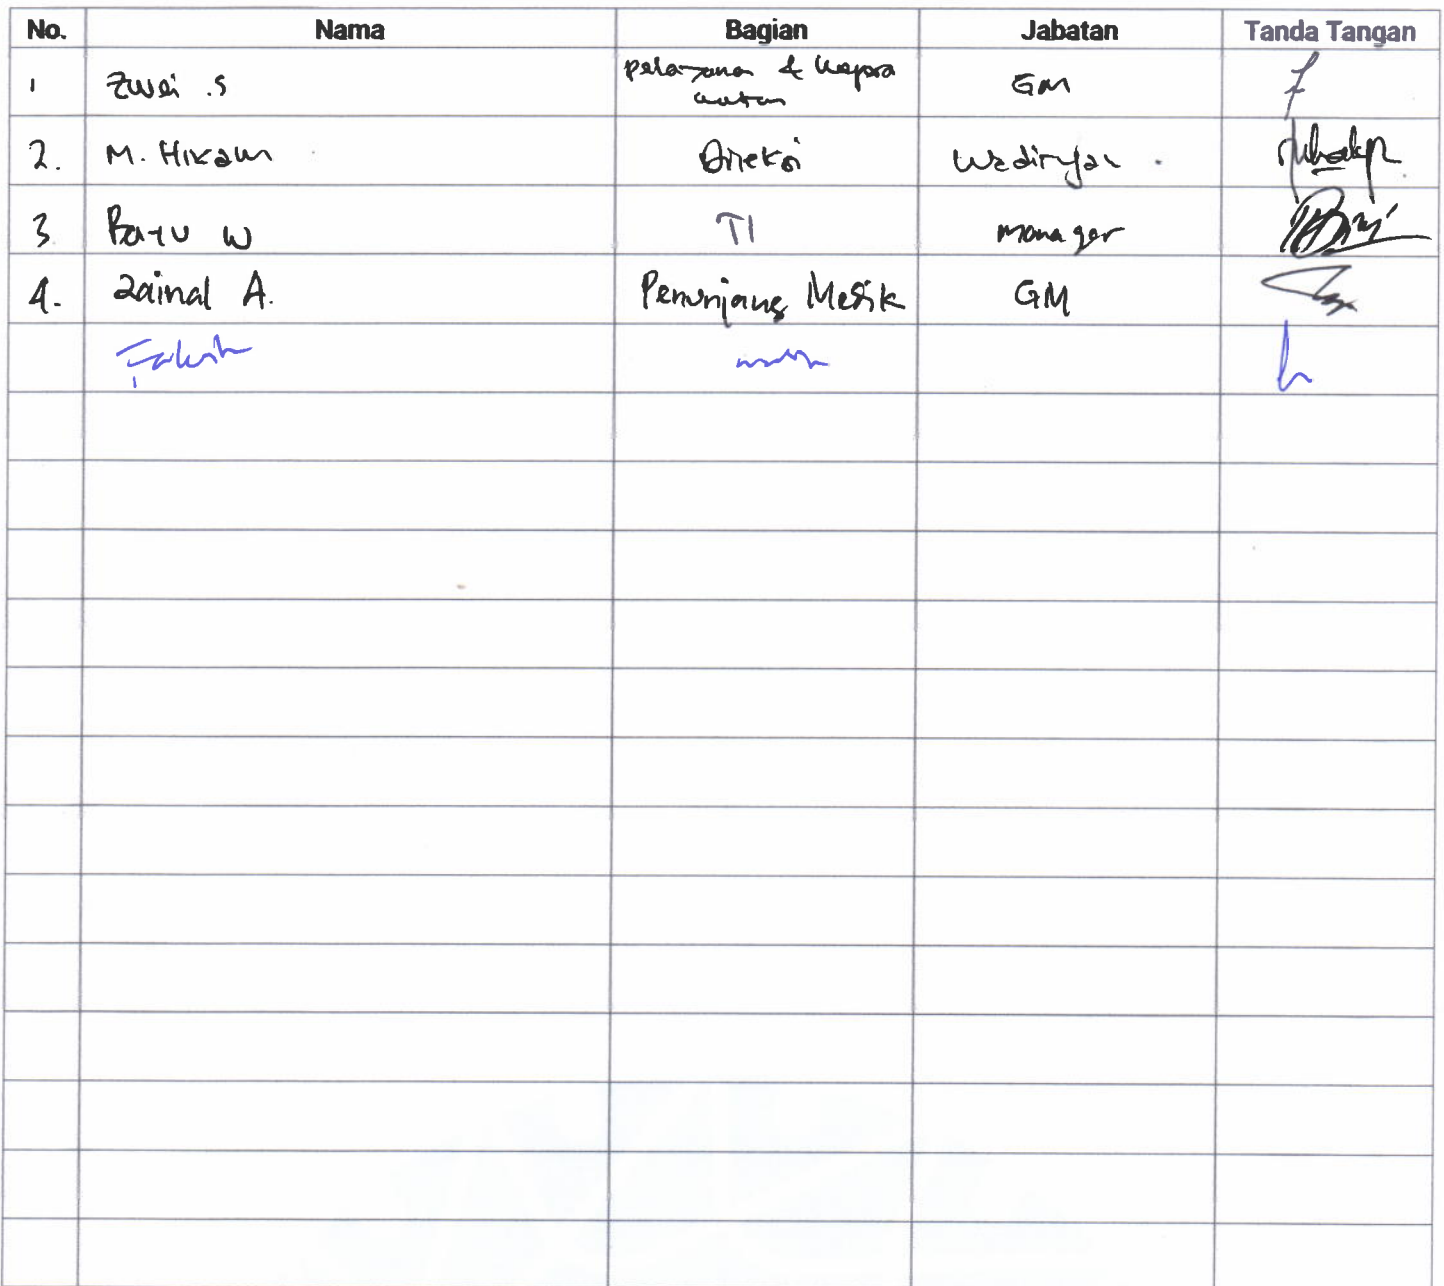 No. Nama Bagian Jabatan Tanda Tangan
1 Zwei .S pelayanan & kepera GM
watan
2. M. Hikam Direksi Wadiryan
3 Bayu W TI manager
4. Zainal A. Penunjang Medik GM